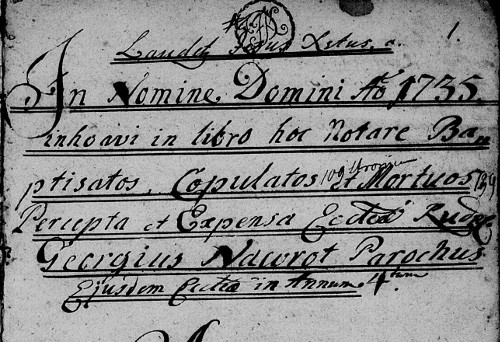 1.
Laudetur Jesus Xstus. a.
In Nomine Domini Ao 1735.
inhoavi in libro hoc Notare Ba=
ptisatos, Copulatos et Mortuos
Percepta et Expensa Ecclae
Georgius Nawrot Parochus
Ejusdem Ecclae in Annum 4tum